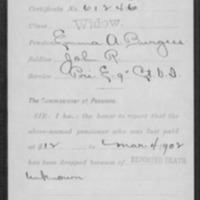 Certificate No. 61246
Class
Widow.
Pensioner Emma A. Burgess
Soldier John R.
Service Pri. E. 9"
The Commissioner of Pensions.
SIR: I have the honor to report that the
above-named pensioner who was last paid
at $12 to Mar 4, 1902
has been dropped because of REPORTED DEATH
unknown